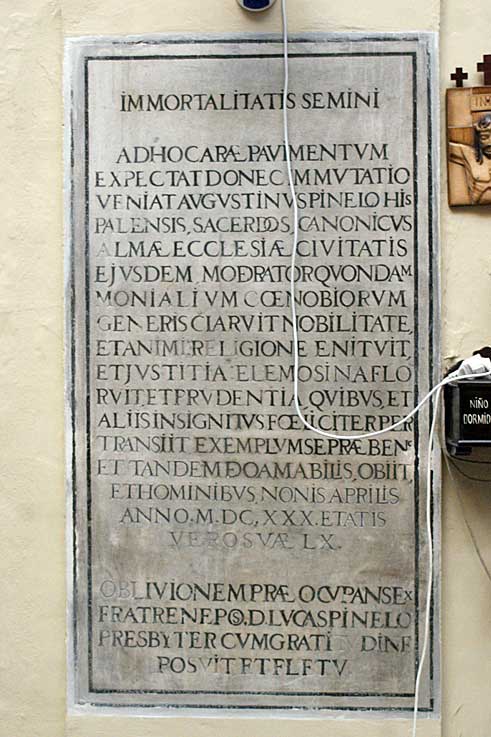 IMMORTALITATIS SEMINI
AD HOC ARÆ PAVIMENTVM
EXPECTAT DONEC IMMVTATIO
VENIAT AVGVSTINVS PINELO HIS
PALENSIS, SACERDOS, CANONICVS
ALMÆ ECCLESIÆ CIVITATIS
EJVSDEM, MODRATOR QVONDAM
MONIALIVM CŒNOBIORVM
GENERIS CLARVIT NOBILITATE,
ET ANIMI RELIGIONE ENITVIT,
ET JVSTITIA ELEMOSINA FLO
RVIT, ET PRVDENTIA QVIBVS, ET
ALIIS INSIGNITVS FŒLICITER PER
TRANSIIT EXEMPLVM SE PRÆBENS
ET TANDEM DO AMABILIS, OBIIT,
ET HOMINIBVS, NONIS APRILIS
ANNO. M. DC, XXX. ETATIS
VERO SVÆ LX.
OBLIVIONEM PRÆOCVPANS EX
FRATRE NEPOS. D. LVCAS PINELO
PRESBYTER CVM GRATITVDINE
POSVIT ET FLETV
NIÑO
DORMIDO